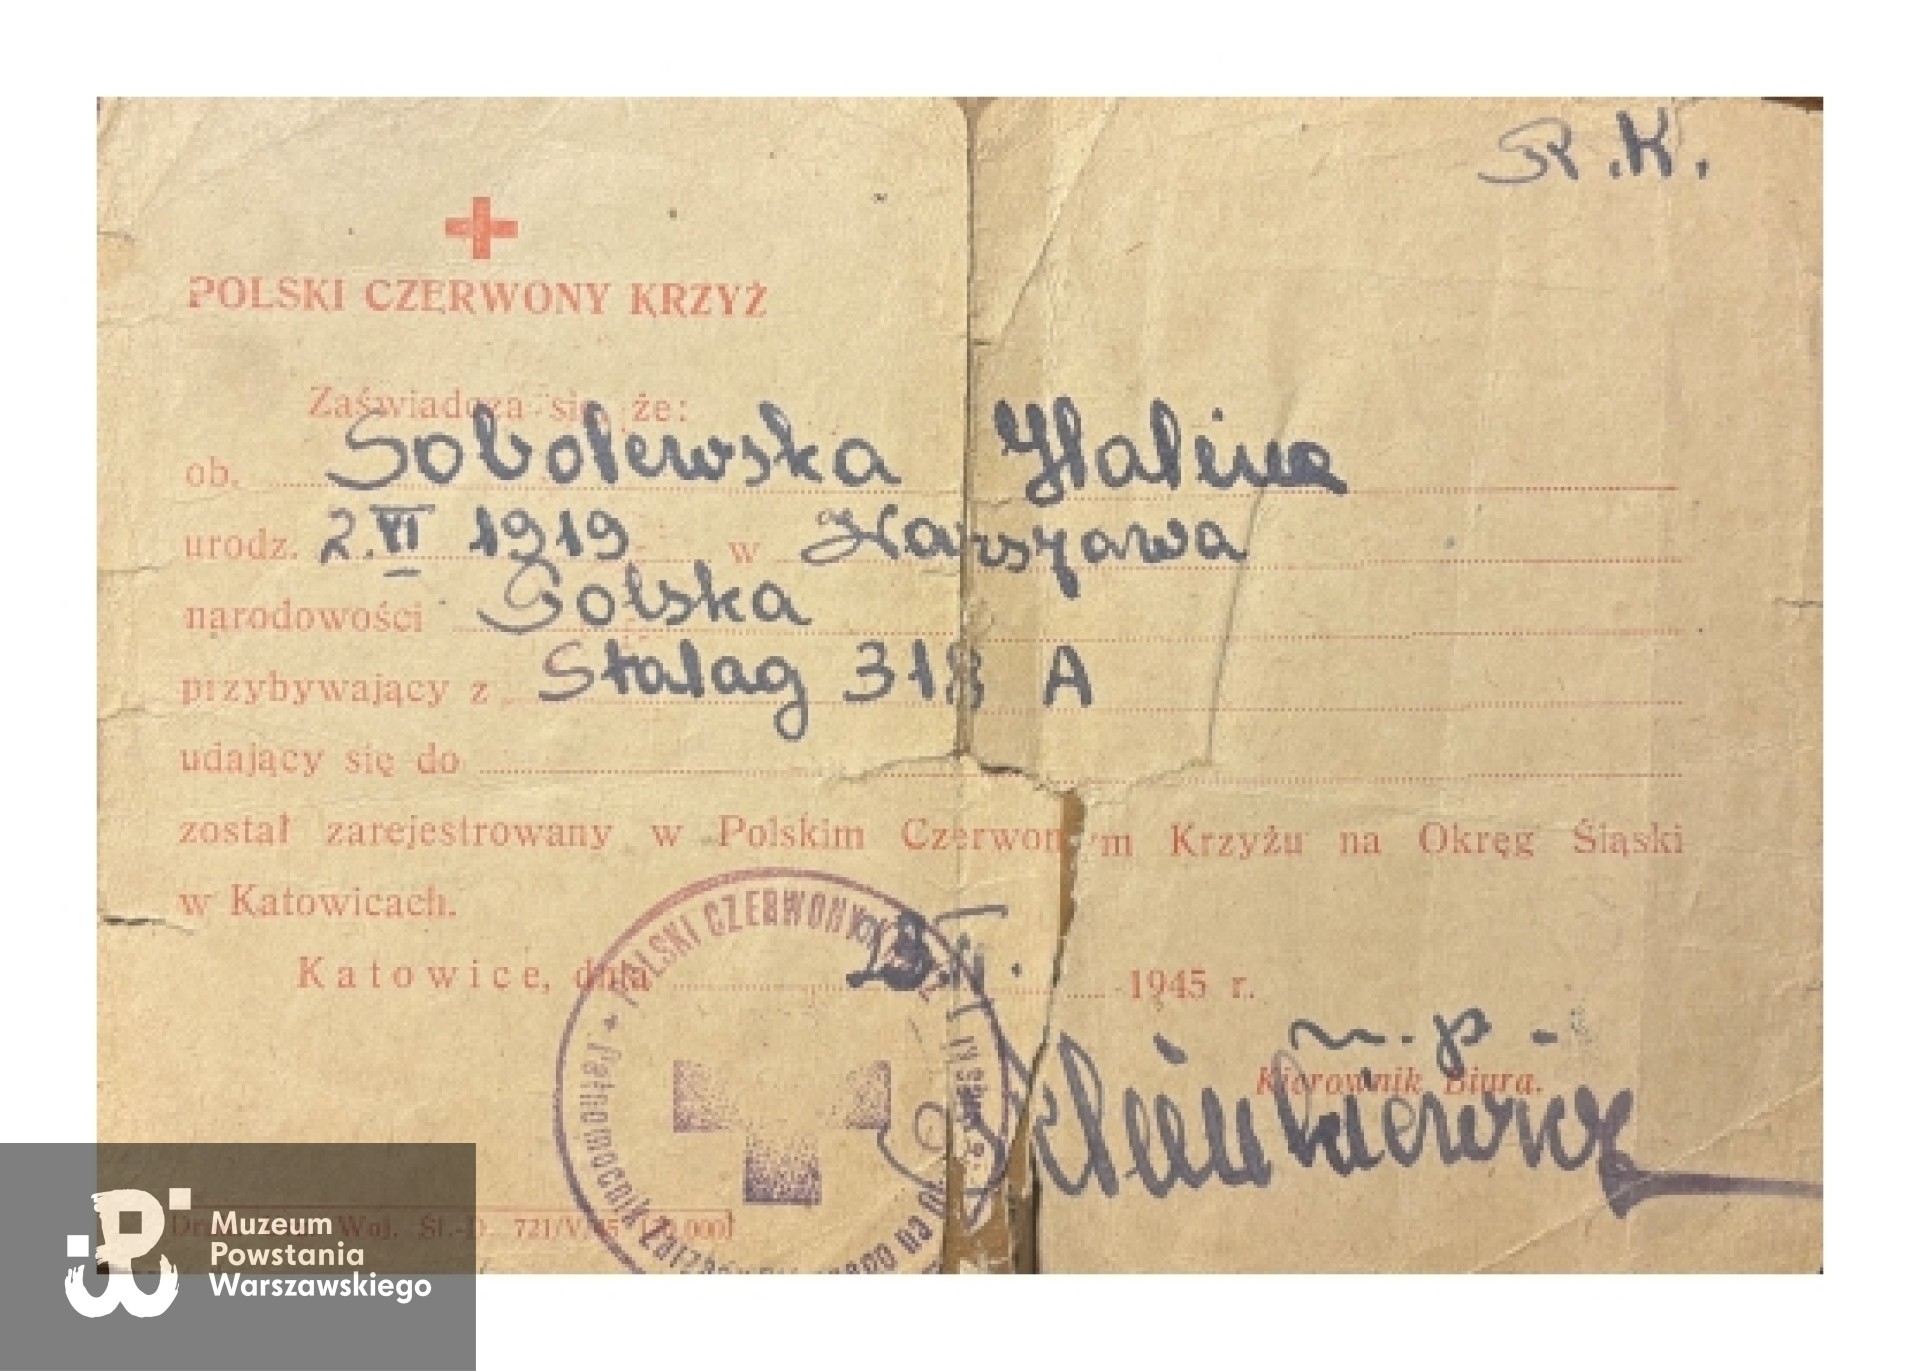 P.K.
POLSKI CZERWONY KRZYŻ
Zaświadcza się że:
ob. Sobolewska Halina
urodz. 2.VI 1919 w Warszawa
narodowości Polska
przybywający z Stalag 318 A
udający się do
został zarejestrowany w Polskim Czerwonym Krzyżu na Okręg Śląski
w Katowicach.
Katowice, dnia 1945 r.
Kierownik Biura.
POLSKI CZERWONY KRZYŻ
Pełnomocnik Zarządu na
Woj. Śl.-D. 721/V/45
Muzeum
Powstania
Warszawskiego